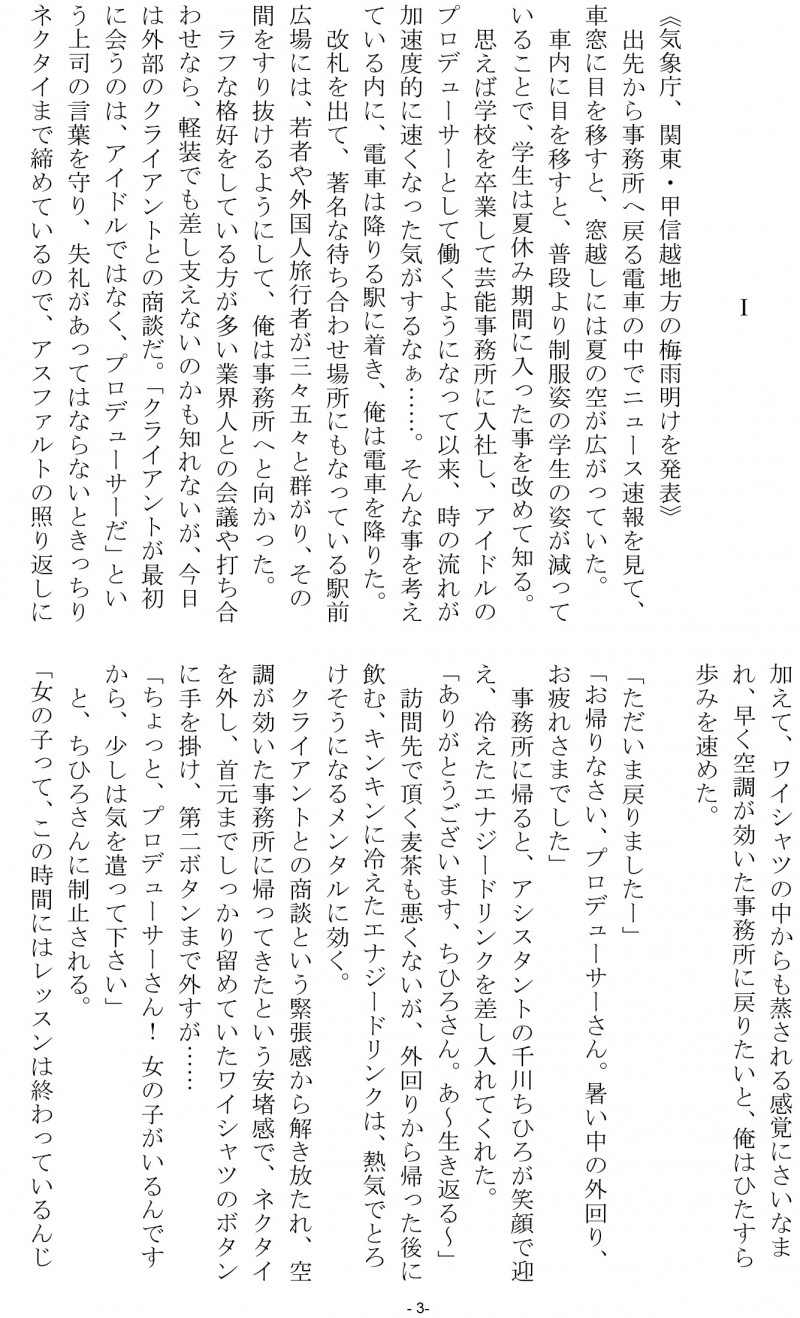 Ⅰ
《気象庁、関東・甲信越地方の梅雨明けを発表》
　出先から事務所へ戻る電車の中でニュース速報を見て、
車窓に目を移すと、窓越しには夏の空が広がっていた。
　車内に目を移すと、普段より制服姿の学生の姿が減って
いることで、学生は夏休み期間に入った事を改めて知る。
　思えば学校を卒業して芸能事務所に入社し、アイドルの
プロデューサーとして働くようになって以来、時の流れが
加速度的に速くなった気がするなぁ……。そんな事を考え
ている内に、電車は降りる駅に着き、俺は電車を降りた。
　改札を出て、著名な待ち合わせ場所にもなっている駅前
広場には、若者や外国人旅行者が三々五々と群がり、その
間をすり抜けるようにして、俺は事務所へと向かった。
　ラフな格好をしている方が多い業界人との会議や打ち合
わせなら、軽装でも差し支えないのかも知れないが、今日
は外部のクライアントとの商談だ。「クライアントが最初
に会うのは、アイドルではなく、プロデューサーだ」とい
う上司の言葉を守り、失礼があってはならないときっちり
ネクタイまで締めているので、アスファルトの照り返しに
加えて、ワイシャツの中からも蒸される感覚にさいなま
れ、早く空調が効いた事務所に戻りたいと、俺はひたすら
歩みを速めた。
「ただいま戻りましたー」
「お帰りなさい、プロデューサーさん。暑い中の外回り、
お疲れさまでした」
　事務所に帰ると、アシスタントの千川ちひろが笑顔で迎
え、冷えたエナジードリンクを差し入れてくれた。
「ありがとうございます、ちひろさん。あ～生き返る～」
　訪問先で頂く麦茶も悪くないが、外回りから帰った後に
飲む、キンキンに冷えたエナジードリンクは、熱気でとろ
けそうになるメンタルに効く。
　クライアントとの商談という緊張感から解き放たれ、空
調が効いた事務所に帰ってきたという安堵感で、ネクタイ
を外し、首元までしっかり留めていたワイシャツのボタン
に手を掛け、第二ボタンまで外すが……
「ちょっと、プロデューサーさん！　女の子がいるんです
から、少しは気を遣って下さい」
　と、ちひろさんに制止される。
「女の子って、この時間にはレッスンは終わっているんじ
- 3-